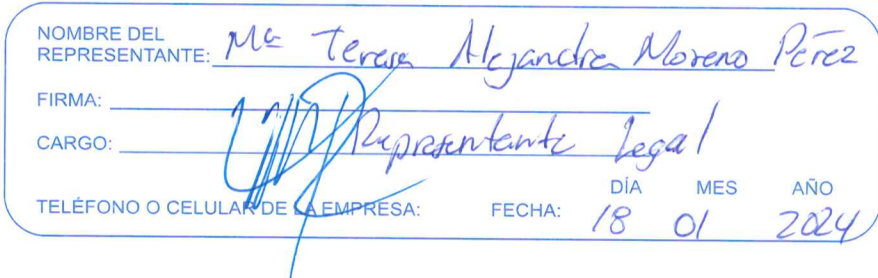 NOMBRE DEL
REPRESENTANTE: Mª Teresa Alejandra Moreno Pérez
FIRMA:
CARGO: Representante Legal
DÍA MES AÑO
TELÉFONO O CELULAR DE LA EMPRESA: FECHA: 18 01 2024